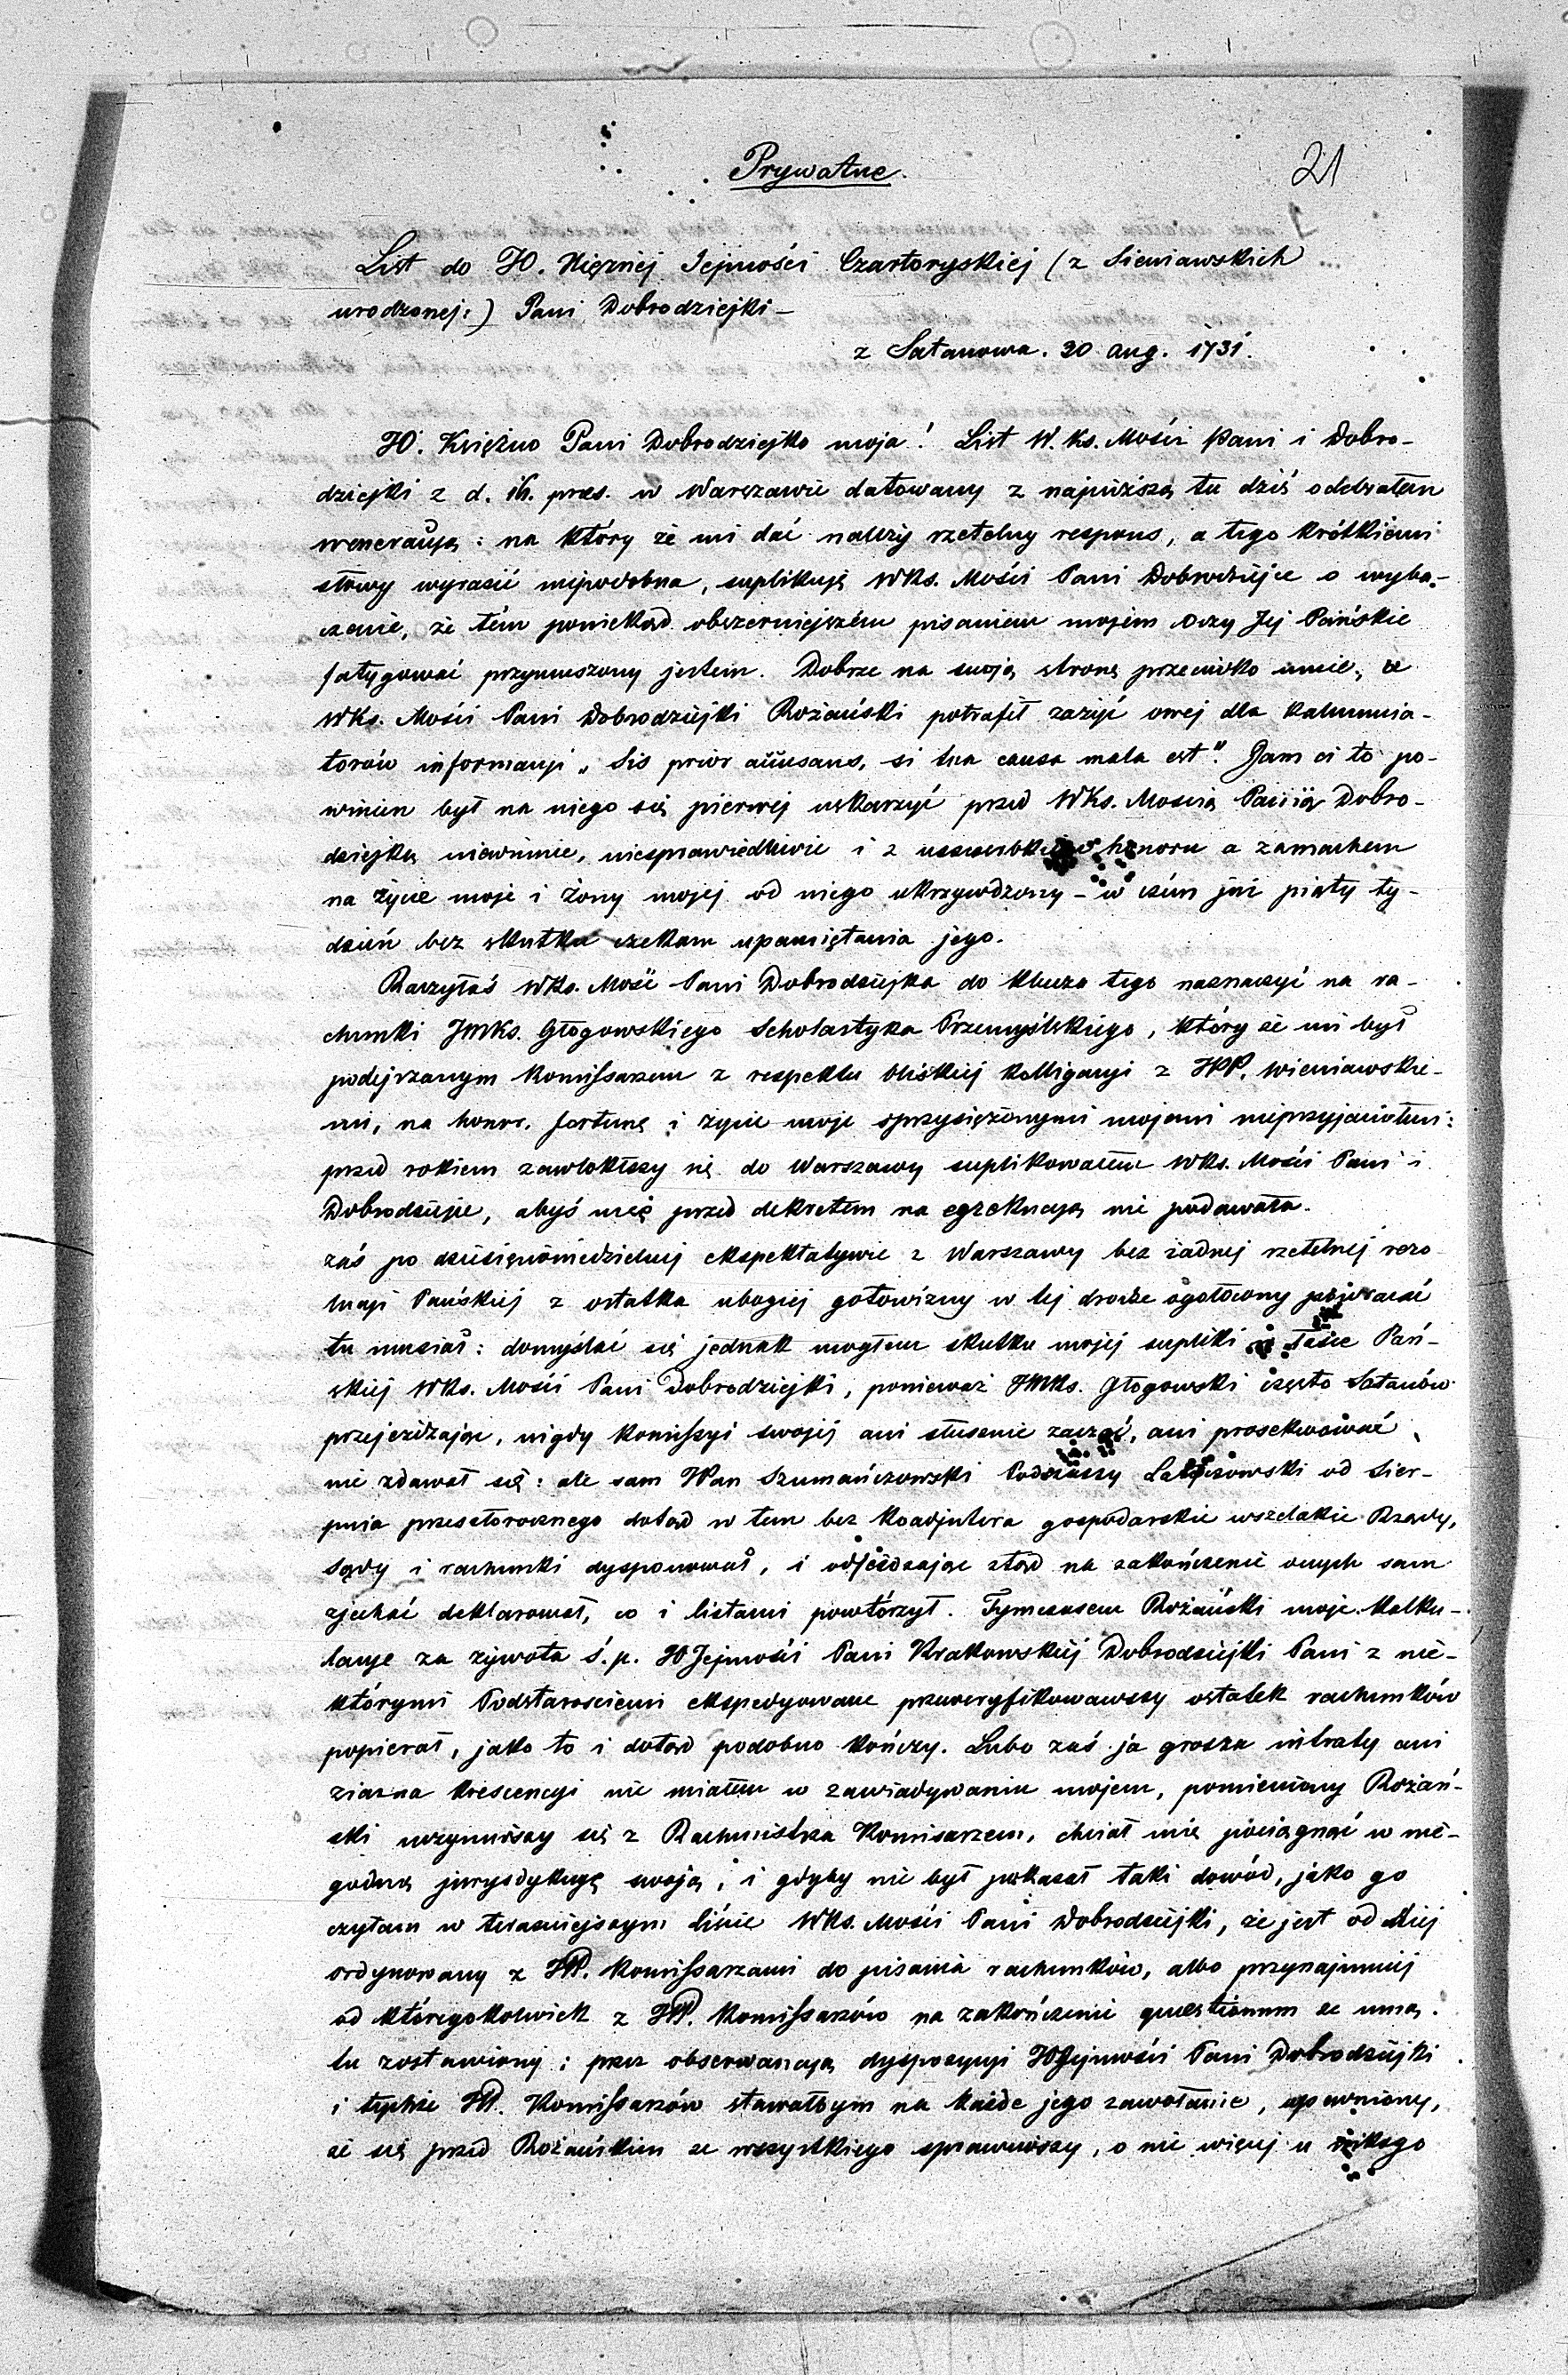 Prywatne.
21
List do JO. Xiężnej Jejmości Czartoryskiej (z Sieniawskich
urodzonej:) Pani Dobrodziejki –
z Satanowa. 30 aug. 1731.
JO. Księżno Pani Dobrodziejko moja! List W. Ks. Mości Pani i Dobro-
dziejki z d. 16. præs. w Warszawie datowany z najniższą tu dziś odebrałem
weneracyą: na który że mi dać należy rzetelny respons, a tego krótkiemi
słowy wyrazić niepodobna, suplikuję WKs. Mości Pani Dobrodziejce o wyba-
czenie, że tém poniekąd obszerniejszém pisaniem mojem oczy Jej Pańskie
fatygować przymuszony jestem. Dobrze na swoją stronę przeciwko mnie, u
WKs. Mości Pani Dobrodziejki Rożański potrafił zażyć owej dla kalumnia-
torów informacyi „Sis prior accusans, si tua causa mala est." Jam ci to po-
winien był na niego się pierwej uskarżyć przed WKs. Mością Panią Dobro-
dziejką niewinnie, niesprawiedliwie i z uszczerbkiem honoru a zamachem
na życie moje i żony mojej od niego ukrzywdzony – w czém już piąty ty-
dzień bez skutku czekam upamiętania jego.
Raczyłaś WKs. Mość Pani Dobrodziejka do klucza tego naznaczyć na ra-
chunki JMKs. Głogowskiego Scholastyka Przemyślskiego, który że mi był
podejrzanym Komissarzem z respektu bliskiej kolligacyi z JPP. Wieniawskie-
mi, na honor, fortunę i życie moje sprzysiężonymi mojemi nieprzyjaciółmi:
przed rokiem zawlokłszy się do Warszawy suplikowałem WKs. Mości Pani i
Dobrodziejce, abyś mię przed dekretem na egzekucyą nie podawała.
zaś po dziesięcioniedzielnej ekspektatywie z Warszawy bez żadnej rzetelnej rezo-
lucyi Pańskiej z ostatka ubogiej gotowizny w tej drodze ogołocony powracać
tu musiał: domyślać się jednak mogłem skutku mojej supliki w łasce Pań-
skiej WKs. Mości Pani Dobrodziejki, ponieważ JMKs. Głogowski często Satanów
przejeżdżając, nigdy Komissyi swojej ani słusznie zacząć, ani prosekwować
nie zdawał się: ale sam JPan Szumańczowski Podczaszy Latyczowski od Sier-
pnia przeszłorocznego dotąd w tem bez Koadjutora gospodarskie wszelakie Rządy,
sądy i rachunki dysponował, i odjeżdzając ztąd na zakończenie onych sam
zjechać deklarował, co i listami powtórzył. Tymczasem Rożański moje Kalku-
lacye za żywota ś. p. JO Jejmości Pani Krakowskiej Dobrodziejki Pani z nie-
którymi Podstarościemi ekspedyowane przeweryfikowawszy ostatek rachunków
popierał, jako to i dotąd podobno kończy. Lubo zaś ja grosza intraty ani
ziarna krescencyi nie miałem w zawiadywaniu mojem, pomieniony Rożań-
ski uczyniwszy się z Rachmistrza Komisarzem, chciał mię pociągnąć w nie-
godną jurysdykcyę swoją; i gdyby nie był pokazał taki dowód, jako go
czytam w teraźniejszym liście WKs. Mości Pani Dobrodziejki, że jest od Niej
ordynowany z JPP. Komissarzami do pisania rachunków, albo przynajmniej
od któregokolwiek z JPP. Komissarzów na zakończenie quæstionum ze mną
tu zostawiony: przez obserwancyą dyspozycyi JOJejmości Pani Dobrodziejki
i tychże JPP. Komissarzów stawałbym na każde jego zawołanie, upewniony,
że się przed Rożańskim ze wszystkiego sprawiwszy, o nic więcej u nikogo